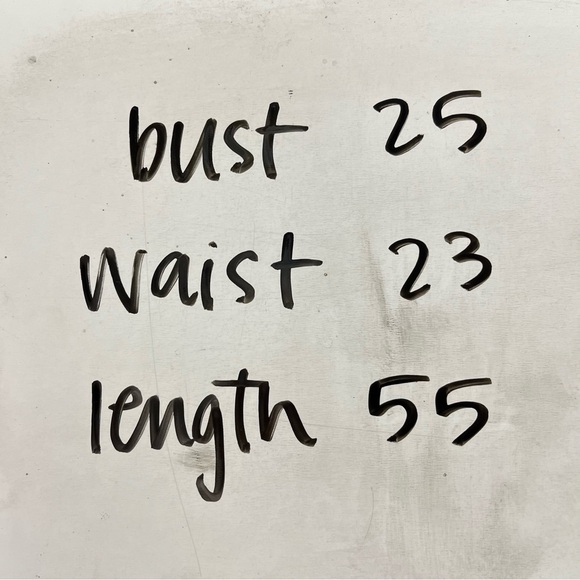 bust 25
waist 23
length 55